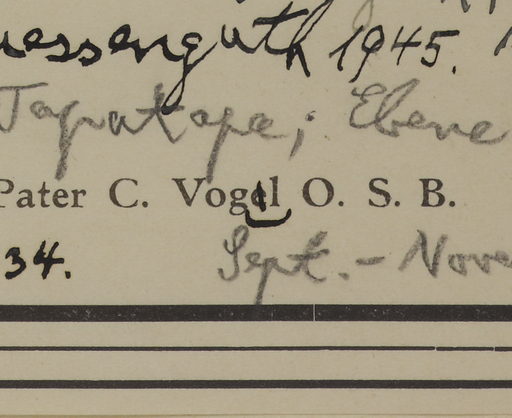 uessenguth 1945.
Taputape; Ebene
Pater C. Vogel O. S. B.
34.
Sept. - Nove